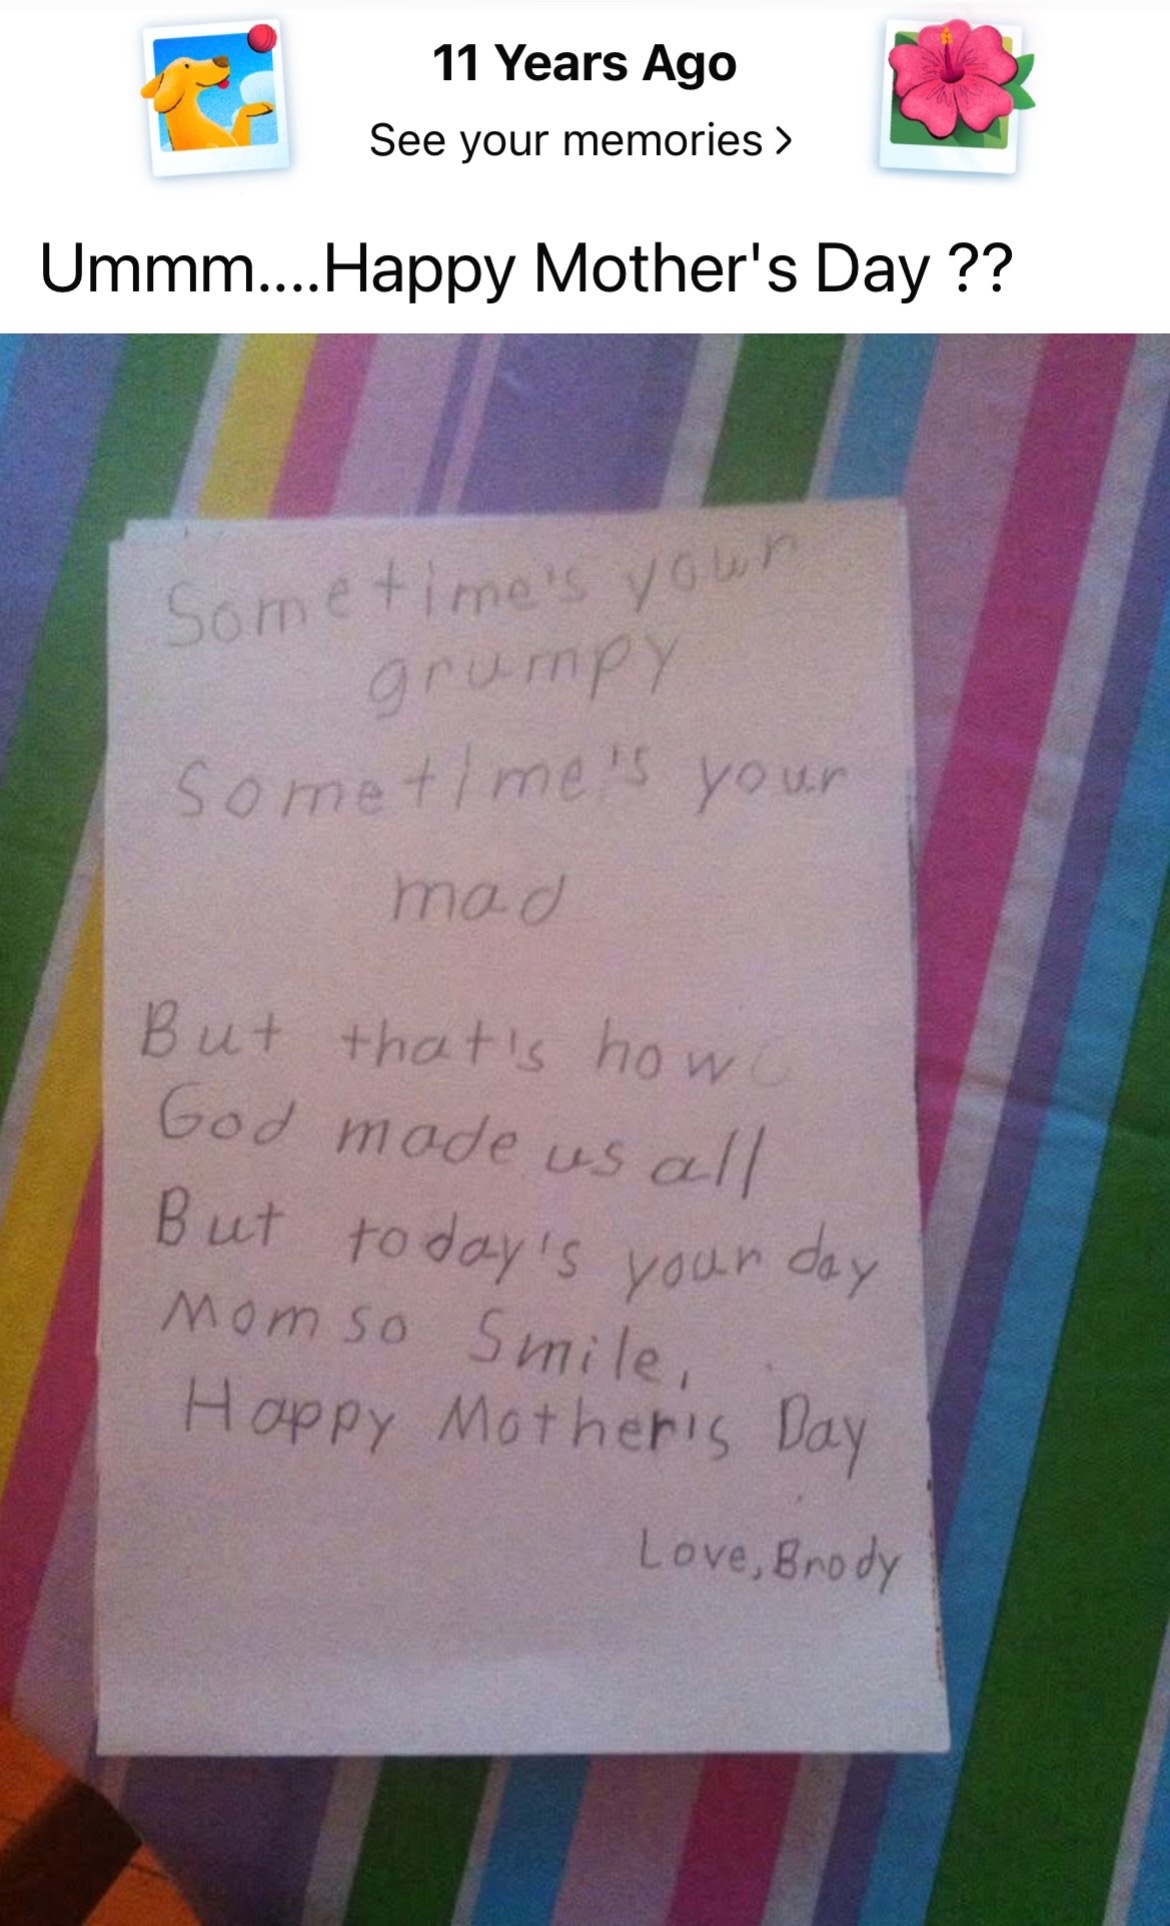 11 Years Ago
See your memories >
Ummm....Happy Mother's Day ??
Sometime's your
grumpy
Sometime's your
mad
But that's how
God made us all
But today's your day
Mom so Smile,
Happy Mother's Day
Love, Brody